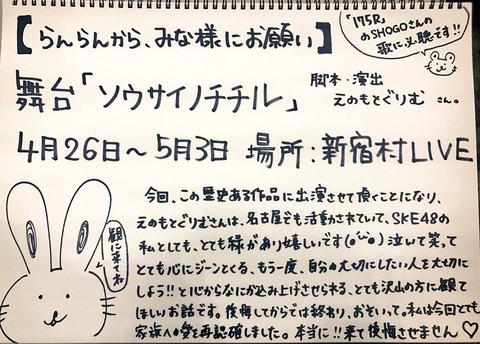 【らんらんから、みな様にお願い】
「175R」
のSHOGOさんの
歌に必聴です!!
舞台「ソウサイノチチル」
脚本・演出
えのもとぐりむ さん。
4月26日〜5月3日 場所:新宿村LIVE
観に来てネ
今回、この歴史ある作品に出演させて頂くことになり、
えのもとぐりむさんは、名古屋でも活動されていて、SKE48の
私としても、とても縁があり嬉しいです(●'◡'●)泣いて笑って
とても心にジーンとくる、もう一度、自分の大切にしたい人を大切に
しよう!!と心からなにか込み上げさせられる、とても沢山の方に観て
ほしいお話です。後悔してからでは終わり、おそいって。私は今回とても
家族への愛を再確認しました。本当に!!来て後悔させません♡